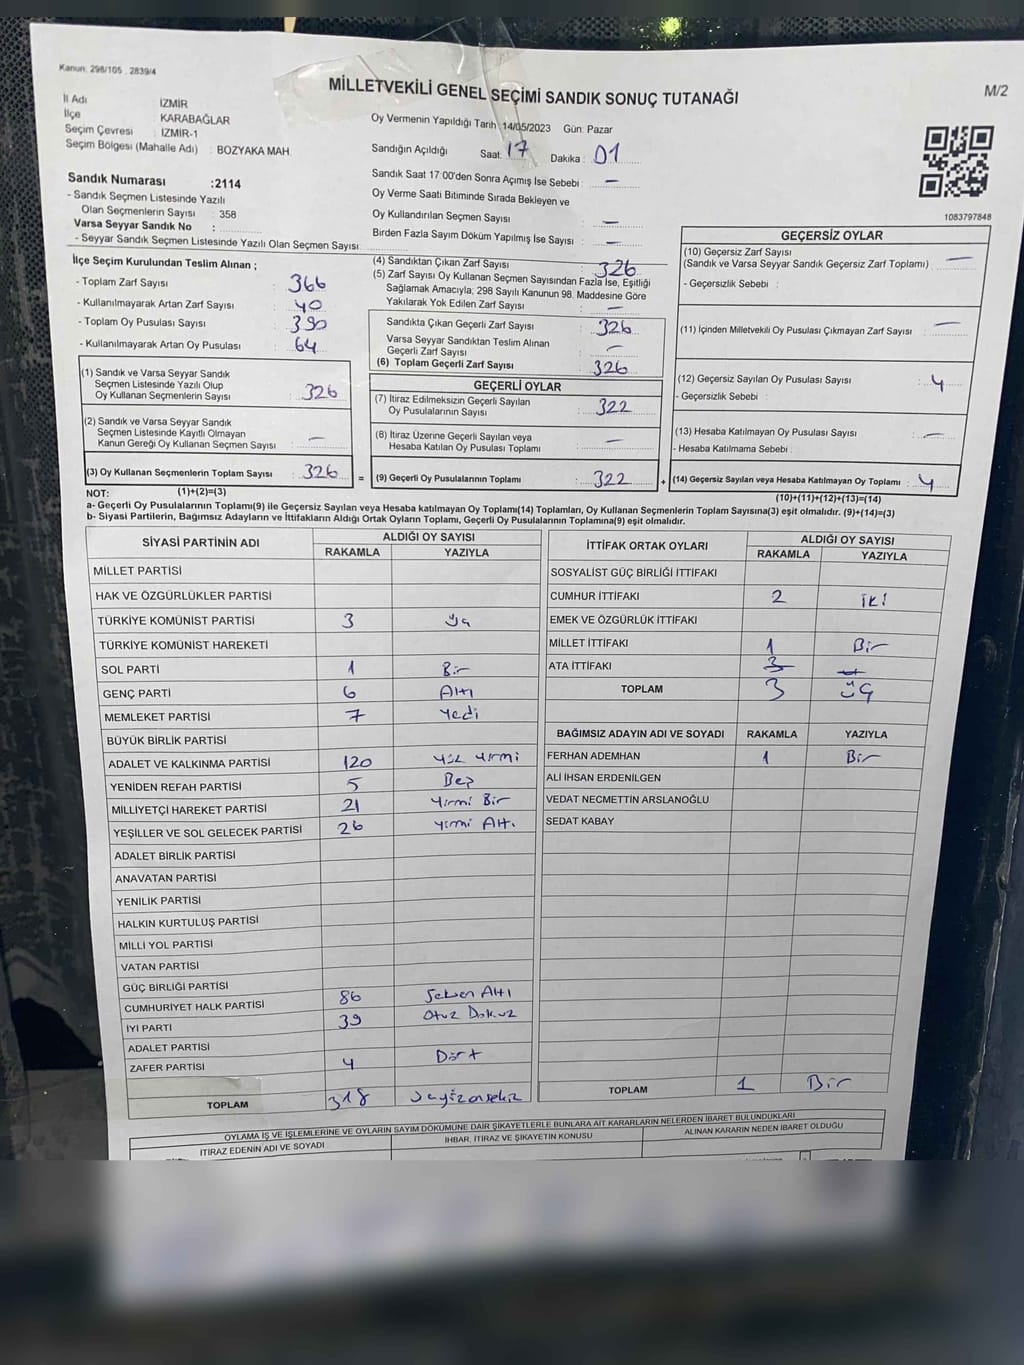 Kanun: 298/105 , 2839/4
MİLLETVEKİLİ GENEL SEÇİMİ SANDIK SONUÇ TUTANAĞI
M/2
İl Adı İZMİR
İlçe KARABAĞLAR
Seçim Çevresi : İZMİR-1
Seçim Bölgesi (Mahalle Adı) : BOZYAKA MAH.
Oy Vermenin Yapıldığı Tarih : 14/05/2023 Gün: Pazar
Sandığın Açıldığı Saat: 17 Dakika : 01
Sandık Saat 17:00'den Sonra Açımış İse Sebebi : —
Oy Verme Saati Bitiminde Sırada Bekleyen ve
Oy Kullandırılan Seçmen Sayısı : —
Birden Fazla Sayım Döküm Yapılmış İse Sayısı : —
1083797848
Sandık Numarası :2114
- Sandık Seçmen Listesinde Yazılı
Olan Seçmenlerin Sayısı : 358
Varsa Seyyar Sandık No :
- Seyyar Sandık Seçmen Listesinde Yazılı Olan Seçmen Sayısı:
İlçe Seçim Kurulundan Teslim Alınan ;
- Toplam Zarf Sayısı : 366
- Kullanılmayarak Artan Zarf Sayısı : 40
- Toplam Oy Pusulası Sayısı : 390
- Kullanılmayarak Artan Oy Pusulası : 64
(1) Sandık ve Varsa Seyyar Sandık
Seçmen Listesinde Yazılı Olup
Oy Kullanan Seçmenlerin Sayısı : 326
(2) Sandık ve Varsa Seyyar Sandık
Seçmen Listesinde Kayıtlı Olmayan
Kanun Gereği Oy Kullanan Seçmen Sayısı : —
(3) Oy Kullanan Seçmenlerin Toplam Sayısı : 326
(4) Sandıktan Çıkan Zarf Sayısı : 326
(5) Zarf Sayısı Oy Kullanan Seçmen Sayısından Fazla İse, Eşitliği
Sağlamak Amacıyla; 298 Sayılı Kanunun 98. Maddesine Göre
Yakılarak Yok Edilen Zarf Sayısı : —
Sandıkta Çıkan Geçerli Zarf Sayısı : 326
Varsa Seyyar Sandıktan Teslim Alınan
Geçerli Zarf Sayısı : —
(6) Toplam Geçerli Zarf Sayısı : 326
GEÇERLİ OYLAR
(7) İtiraz Edilmeksizin Geçerli Sayılan
Oy Pusulalarının Sayısı : 322
(8) İtiraz Üzerine Geçerli Sayılan veya
Hesaba Katılan Oy Pusulası Toplamı : —
= (9) Geçerli Oy Pusulalarının Toplamı : 322
GEÇERSİZ OYLAR
(10) Geçersiz Zarf Sayısı
(Sandık ve Varsa Seyyar Sandık Geçersiz Zarf Toplamı) : —
- Geçersizlik Sebebi :
(11) İçinden Milletvekili Oy Pusulası Çıkmayan Zarf Sayısı : —
(12) Geçersiz Sayılan Oy Pusulası Sayısı : 4
- Geçersizlik Sebebi :
(13) Hesaba Katılmayan Oy Pusulası Sayısı : —
- Hesaba Katılmama Sebebi :
+ (14) Geçersiz Sayılan veya Hesaba Katılmayan Oy Toplamı : 4
NOT: (1)+(2)=(3)
(10)+(11)+(12)+(13)=(14)
a- Geçerli Oy Pusulalarının Toplamı(9) ile Geçersiz Sayılan veya Hesaba katılmayan Oy Toplamı(14) Toplamları, Oy Kullanan Seçmenlerin Toplam Sayısına(3) eşit olmalıdır. (9)+(14)=(3)
b- Siyasi Partilerin, Bağımsız Adayların ve İttifakların Aldığı Ortak Oyların Toplamı, Geçerli Oy Pusulalarının Toplamına(9) eşit olmalıdır.
SİYASİ PARTİNİN ADI ALDIĞI OY SAYISI
RAKAMLA YAZIYLA
MİLLET PARTİSİ
HAK VE ÖZGÜRLÜKLER PARTİSİ
TÜRKİYE KOMÜNİST PARTİSİ 3 üç
TÜRKİYE KOMÜNİST HAREKETİ
SOL PARTİ 1 Bir
GENÇ PARTİ 6 Altı
MEMLEKET PARTİSİ 7 Yedi
BÜYÜK BİRLİK PARTİSİ
ADALET VE KALKINMA PARTİSİ 120 yüz yirmi
YENİDEN REFAH PARTİSİ 5 Beş
MİLLİYETÇİ HAREKET PARTİSİ 21 Yirmi Bir
YEŞİLLER VE SOL GELECEK PARTİSİ 26 yirmi Altı
ADALET BİRLİK PARTİSİ
ANAVATAN PARTİSİ
YENİLİK PARTİSİ
HALKIN KURTULUŞ PARTİSİ
MİLLİ YOL PARTİSİ
VATAN PARTİSİ
GÜÇ BİRLİĞİ PARTİSİ
CUMHURİYET HALK PARTİSİ 86 Seksen Altı
İYİ PARTİ 39 Otuz Dokuz
ADALET PARTİSİ
ZAFER PARTİSİ 4 Dört
TOPLAM 318
İTTİFAK ORTAK OYLARI ALDIĞI OY SAYISI
RAKAMLA YAZIYLA
SOSYALİST GÜÇ BİRLİĞİ İTTİFAKI
CUMHUR İTTİFAKI 2 iki
EMEK VE ÖZGÜRLÜK İTTİFAKI
MİLLET İTTİFAKI 1 Bir
ATA İTTİFAKI 3
TOPLAM 3 üç
BAĞIMSIZ ADAYIN ADI VE SOYADI RAKAMLA YAZIYLA
FERHAN ADEMHAN 1 Bir
ALİ İHSAN ERDENİLGEN
VEDAT NECMETTİN ARSLANOĞLU
SEDAT KABAY
TOPLAM 1 Bir
OYLAMA İŞ VE İŞLEMLERİNE VE OYLARIN SAYIM DÖKÜMÜNE DAİR ŞİKAYETLERLE BUNLARA AİT KARARLARIN NELERDEN İBARET BULUNDUKLARI
İTİRAZ EDENİN ADI VE SOYADI İHBAR, İTİRAZ VE ŞİKAYETİN KONUSU ALINAN KARARIN NEDEN İBARET OLDUĞU